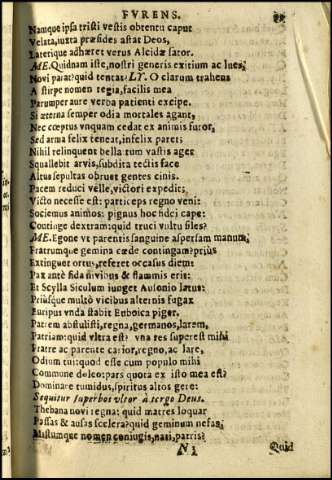 FVRENS.
Namque ipsa tristi vestis obtentu caput
Velata, iuxta præsides astat Deos,
Laterique adhæret verus Alcidæ sator.
ME. Quidnam iste, nostri generis exitium ac lues,
Novi parat? quid tentat? LY. O clarum trahens
A stirpe nomen regia, facilis mea
Parumper aure verba patienti excipe.
Si æterna semper odia mortales agant,
Nec cœptus vnquam cedat ex animis furor,
Sed arma felix teneat, infelix paret;
Nihil relinquent bella tum vastis ager
Squallebit arvis, subdita tectis face
Altus sepultas obruet gentes cinis.
Pacem reduci velle, victori expedit;
Victo necesse est: particeps regno veni:
Sociemus animos: pignus hoc fidei cape:
Continge dextram: quid truci vultu siles?
ME. Egone vt parentis sanguine aspersam manum,
Fratrumque gemina cæde contingam? priùs
Extinguet ortus, referet occasus diem:
Pax antè fida nivibus & flammis erit:
Et Scylla Siculum iunget Ausonio latus:
Priúsque multò vicibus alternis fugax
Euripus vnda stabit Euboica piger.
Patrem abstulisti, regna, germanos, larem,
Patriam: quid vltra est? vna res superest mihi
Fratre ac parente carior, regno, ac lare,
Odium tui: quod esse cum populo mihi
Commune doleo: pars quota ex isto mea est?
Dominare tumidus, spiritus altos gere:
Sequitur superbos vltor à tergo Deus.
Thebana novi regna: quid matres loquar
Passas & ausas scelera? quid geminum nefas,
Mistumque nomen coniugis, nati, patris?
N 1 Quid